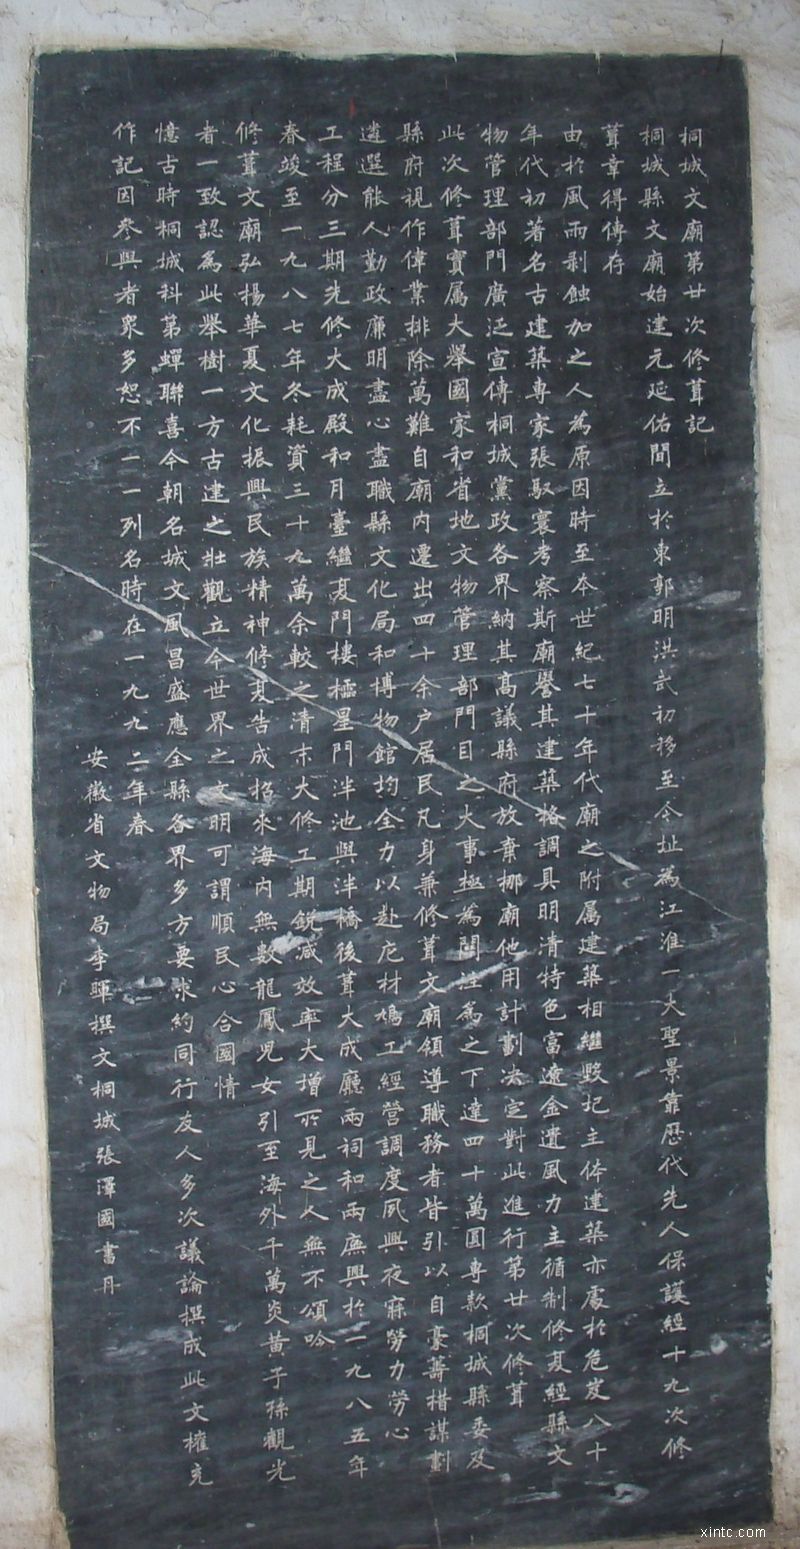 桐城文廟第廿次修葺記
桐城縣文廟始建元延佑間立於東郭明洪武初移至今址為江淮一大聖景靠歷代先人保護經十九次修
葺章得傳存
由於風雨剥蝕加之人為原因時至本世紀七十年代廟之附属建築相繼毀圮主体建築亦處於危岌八十
年代初著名古建築專家張馭寰考察斯廟譽其建築格調具明清特色富遼金遺風力主循制修复經縣文
物管理部門廣泛宣傳桐城黨政各界納其高議縣府放棄挪廟他用計劃决定對此進行第廿次修葺
此次修葺實属大舉國家和省地文物管理部門目之大事極為關注為之下達四十萬圓專款桐城縣委及
縣府視作偉業排除萬難自廟内遷出四十余户居民凡身兼修葺文廟領導職務者皆引以自豪籌措謀劃
遴選能人勤政廉明盡心盡職縣文化局和博物館均全力以赴庀材鳩工經營調度夙興夜寐勞力勞心
工程分三期先修大成殿和月臺繼复門樓櫺星門泮池與泮橋後葺大成廳兩祠和兩廡興於一九八五年
春竣至一九八七年冬耗資三十九萬余較之清末大修工期銳减效率大增所見之人無不頌唅
修葺文廟弘揚華夏文化振興民族精神修复告成招來海内無數龍鳳兒女引至海外千萬炎黃子孫觀光
者一致認為此舉樹一方古建之壯觀立今世界之文明可謂順民心合國情
憶古時桐城科第蟬聯喜今朝名城文風昌盛應全縣各界多方要求約同行友人多次議論撰成此文權充
作記因參與者衆多恕不一一列名時在一九九二年春
安徽省文物局李暉撰文桐城張澤國書丹
xintc.com